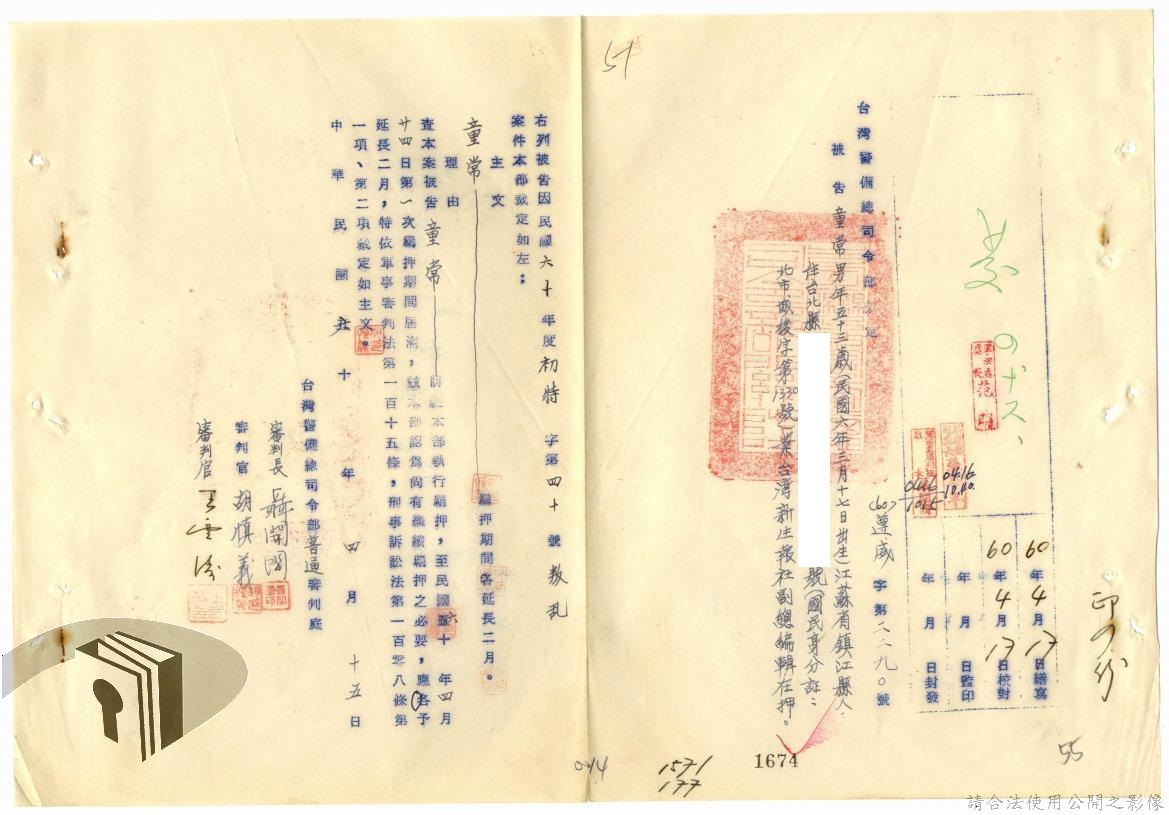 60年4月17日繕寫
60年4月17日校對
年 月 日監印
年 月 日封發
印叉份
台灣警備總司令部裁定
(60)遵威字第二二九〇號
被告童常男年五十三歲(民國六年三月十七日出生)江蘇省鎮江縣人,
住台北縣
號(國民身分証:
北市城模字第1330號)業台灣新生報社副總編輯在押。
0416
1015
0416
10.40.
51
55
1674
1571
177
右列被告因民國六十年度初特字第四十號叛乱
案件本部裁定如左:
主文
童常
羈押期間各延長二月。
理由
查本案被告童常
前經本部執行羈押,至民國六十年四月
廿四日第一次羈押期間屆滿,茲本部認為尚有繼續羈押之必要,應各予
延長二月,特依軍事審判法第一百十五條,刑事訴訟法第一百零八條第
一項、第二項裁定如主文。
中華民國六十年四月十五日
台灣警備總司令部普通審判庭
審判長聶開國
審判官胡慎義
審判官王雲濤
請合法使用公開之影像